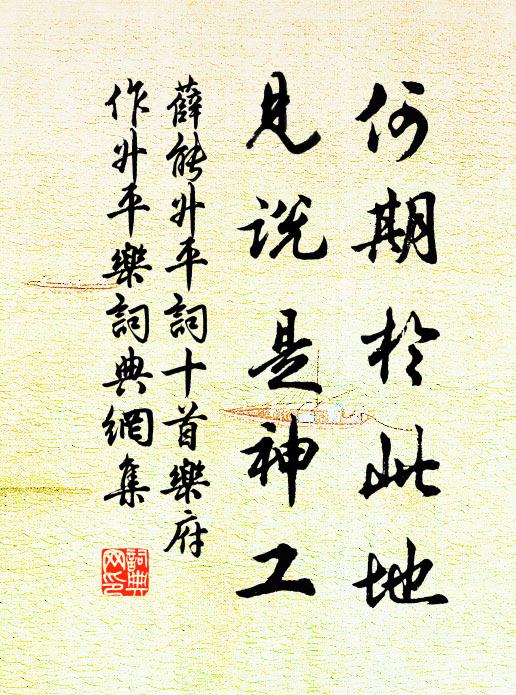 何期於此地
見說是神工
薛能升平詞十首樂府
作升平樂詞典網集
詞典网印